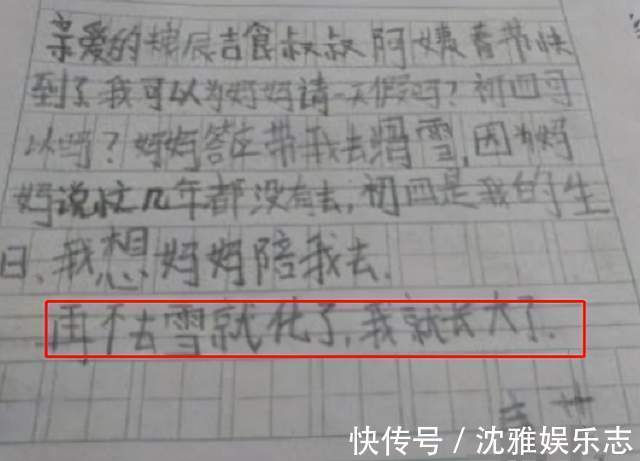 亲爱的粮辰吉食叔叔阿姨春节快
到了我可以为妈妈请一天假吗?初四可
以吗?妈妈答应带我去滑雪,因为妈
妈说忙几年都没有去,初四是我的生
日,我想妈妈陪我去.
再不去雪就化了,我就长大了.
快传号/沈雅娱乐志